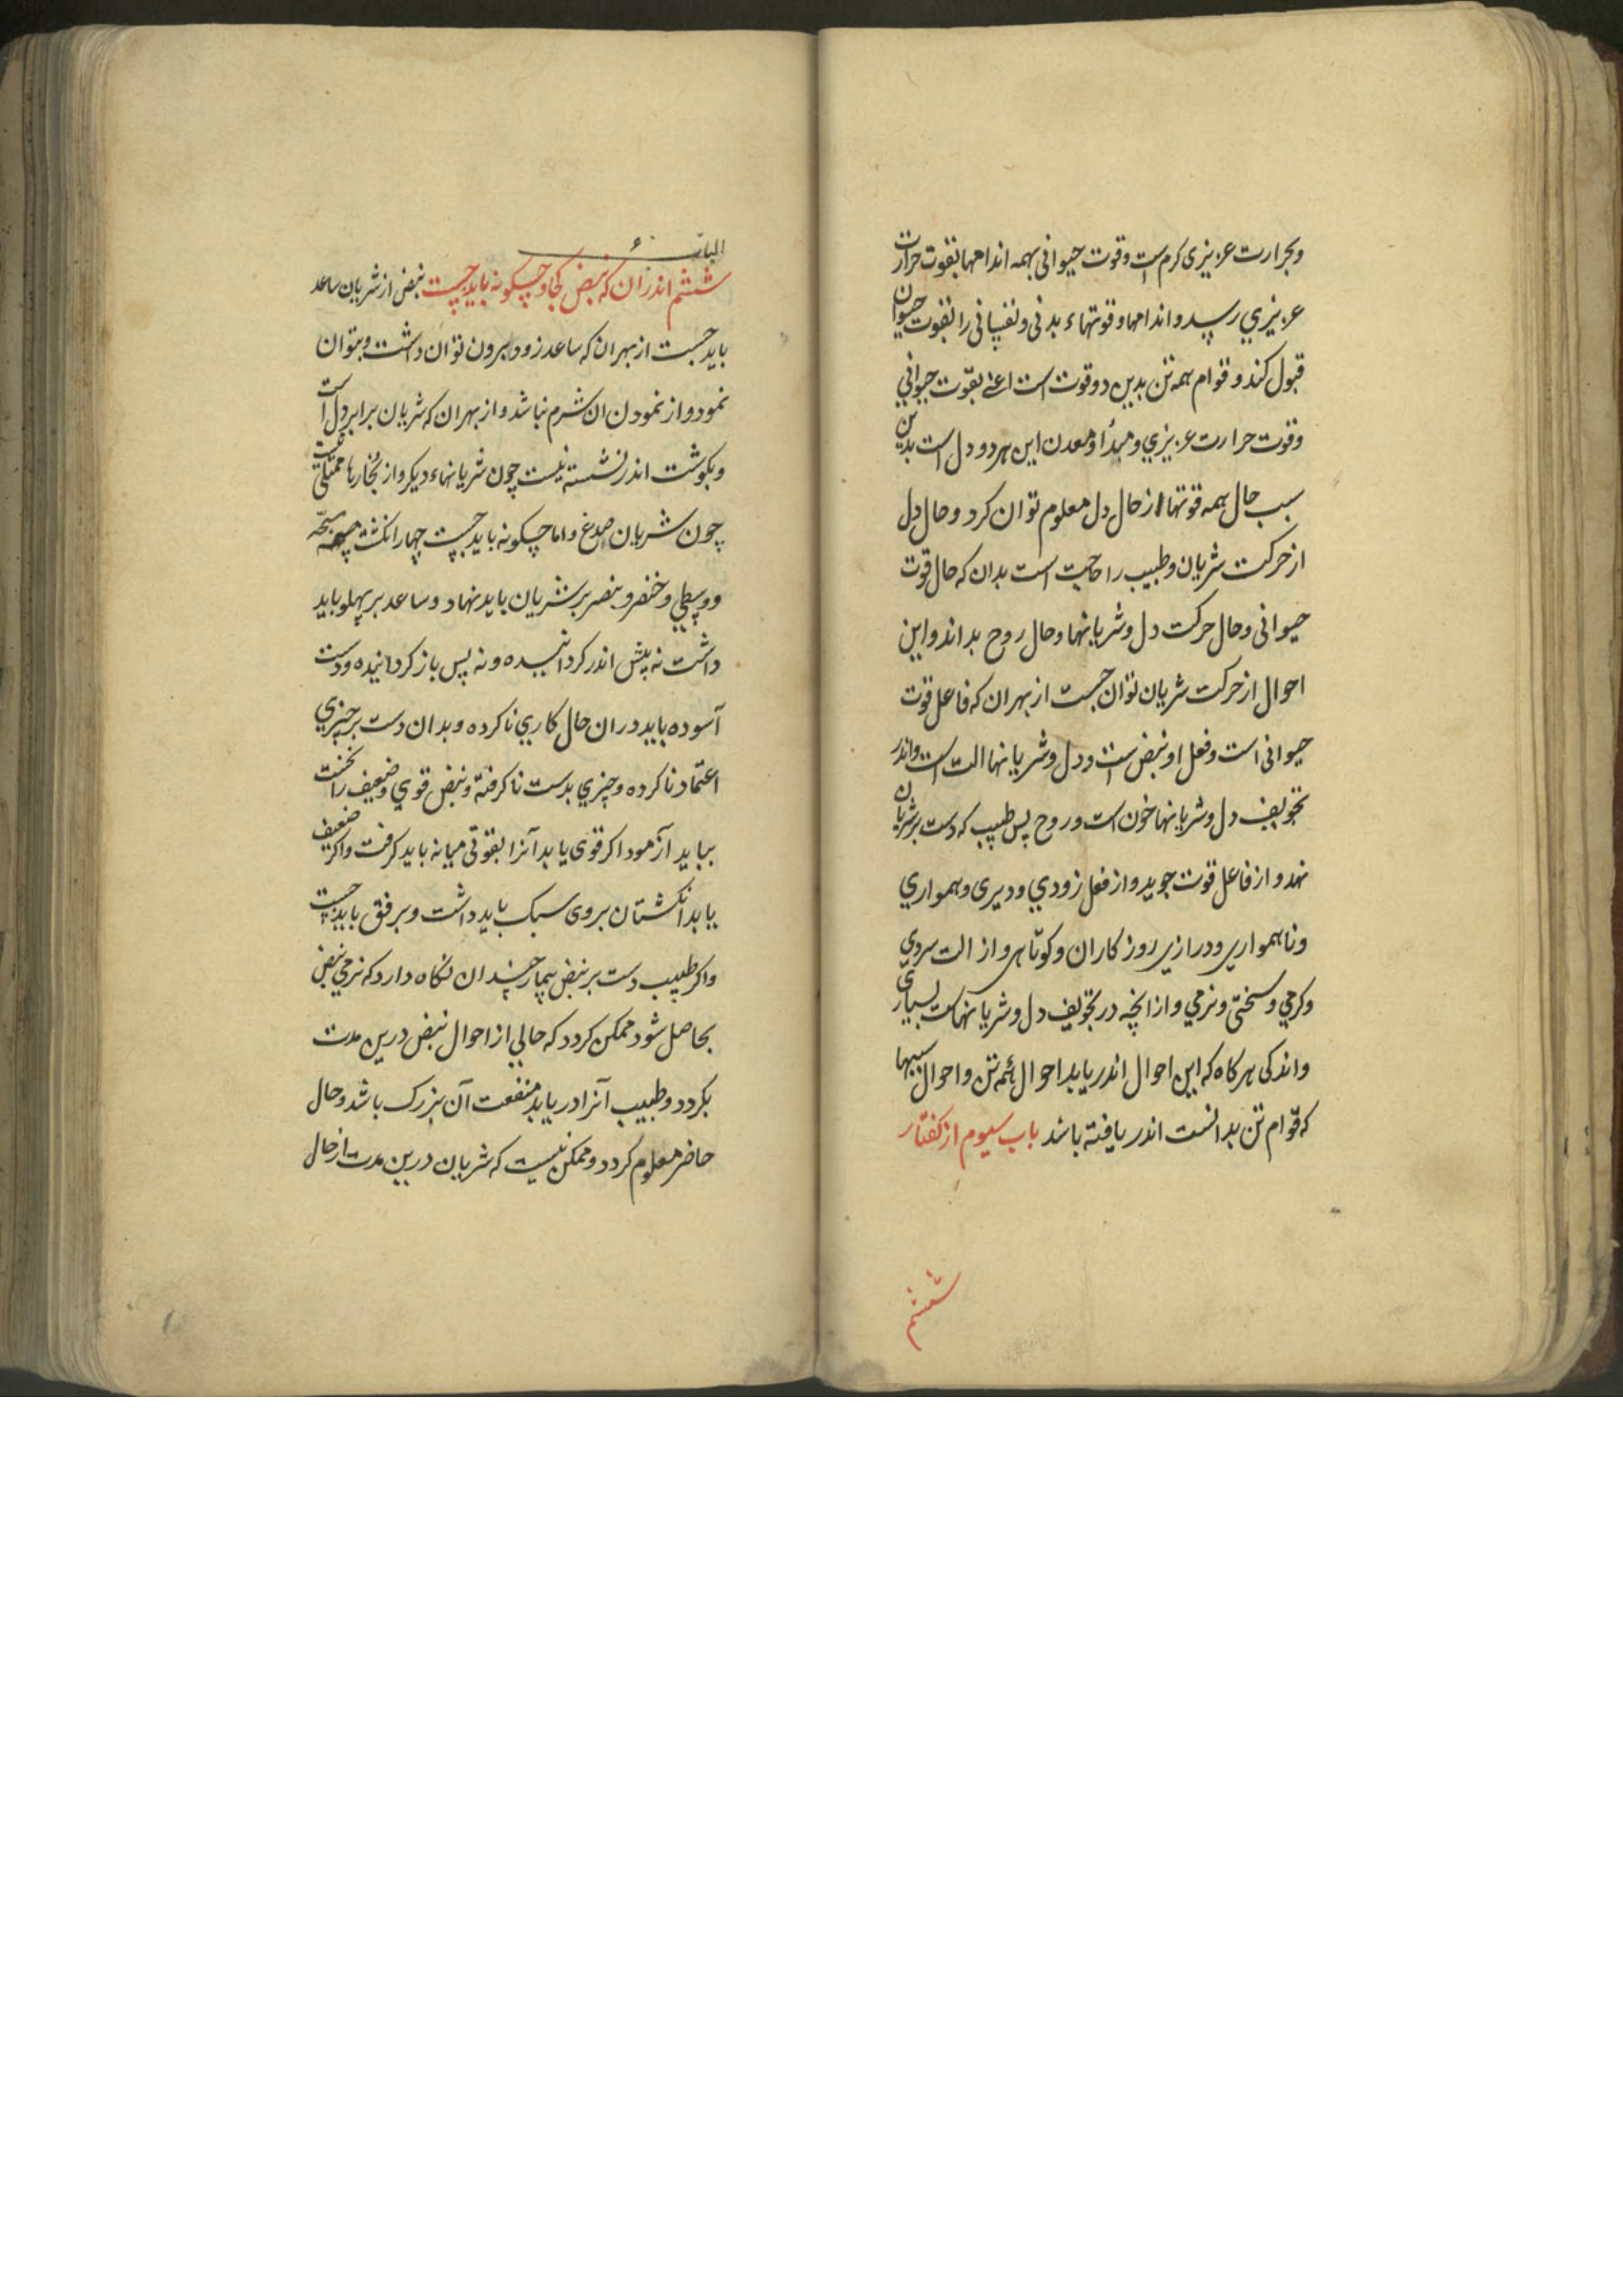 وبحرارت عزیزی کرم است وقوت حیوانی بهمه اندامها بقوت حرارت
عزیزي رسد واندامها وقوتهاء بدنی ونفسانی را بقوت حیوان
قبول کند وقوام همه تن بدین دو قوت است اعنے بقوّت حیوانی
وقوت حرارت عزیزي ومبدأ ومعدن این هردو دل است بدین
سبب حال همه قوتها از حال دل معلوم توان کرد وحال دل
از حرکت شریان وطبیب را حاجت است بدان که حال قوت
حیوانی وحال حرکت دل وشریانها وحال روح بداند واین
احوال از حرکت شریان توان جست از بهر ان که فاعل قوت
حیوانی است وفعل او نبض است ودل وشریانها الت است واندر
تجویف دل وشریانها خون است وروح پس طبیب که دست بر شریان
نهد و از فاعل قوت جوید واز فعل زودي ودیری وهمواري
وناهمواري ودرازي روزکاران وکوتاهی واز الت سردي
وکرمي وسختی ونرمي وازانچه در تجویف دل وشریانهاست بسیاری
واندکی هرکاه که این احوال اندر یابد احوال همه تن واحوال سببها
که قوام تن بدانست اندر یافته باشد باب سیوم از کفتار
ششم
الباب
ششم اندر ان که نبض کجا وچکونه باید جست نبض از شریان ساعد
باید جست از بهر ان که ساعد زود بیرون توان داشت وبتوان
نمود واز نمودن ان شرم نباشد واز بهر ان که شریان برابر دل است
وبکوشت اندر نشسته نیست چون شریانهاء دیکر واز بخارها ممتلی نیست
چون شریان صدغ واما چکونه باید جست چهار انکشت سبحه
ووسطي وخنصر وبنصر بر شریان باید نهاد وساعد بر پهلو باید
داشت نه پیش اندر کردانیده ونه پس باز کردانیده ودست
آسوده باید دران حال کاري ناکرده وبدان دست بر چیزي
اعتماد ناکرده وچیزي بدست ناکرفته ونبض قوي وضعیف را نخست
بباید آزمود اکر قوی یابد آنرا بقوتی میانه باید کرفت واکر ضعیف
یابد انکشتان بروی سبک باید داشت وبرفق باید جست
واکر طبیب دست بر نبض بیمار چندان نکاه دارد که نرمي نبض
بحاصل شود ممکن کردد که حالي از احوال نبض درین مدت
بکردد وطبیب آنرا دریابد منفعت آن بزرک باشد وحال
حاضر معلوم کردد وممکن نیست که شریان درین مدت از حال